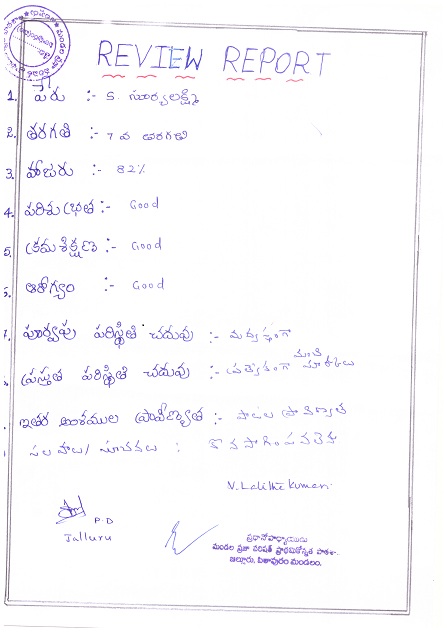 REVIEW REPORT
1. పేరు :- S. సూర్యలక్ష్మి
2. తరగతి :- 7 వ తరగతి
3. హాజరు :- 82%
4. పరిశుభ్రత :- Good
5. క్రమశిక్షణ :- Good
6. ఆరోగ్యం :- Good
7. పూర్వపు పరిస్థితి చదువు :-
ప్రస్తుత పరిస్థితి చదువు :- మార్కులు
ఇతర అంశముల ప్రావీణ్యత :- పాటల ప్రావీణ్యత
సలహాలు / సూచనలు : కొనసాగింపవలెను
V. Lalitha Kumari
P.D
Jalluru
ప్రధానోపాధ్యాయుడు
మండల ప్రజా పరిషత్ ప్రాథమికోన్నత పాఠశాల
జల్లూరు, పిఠాపురం మండలం.